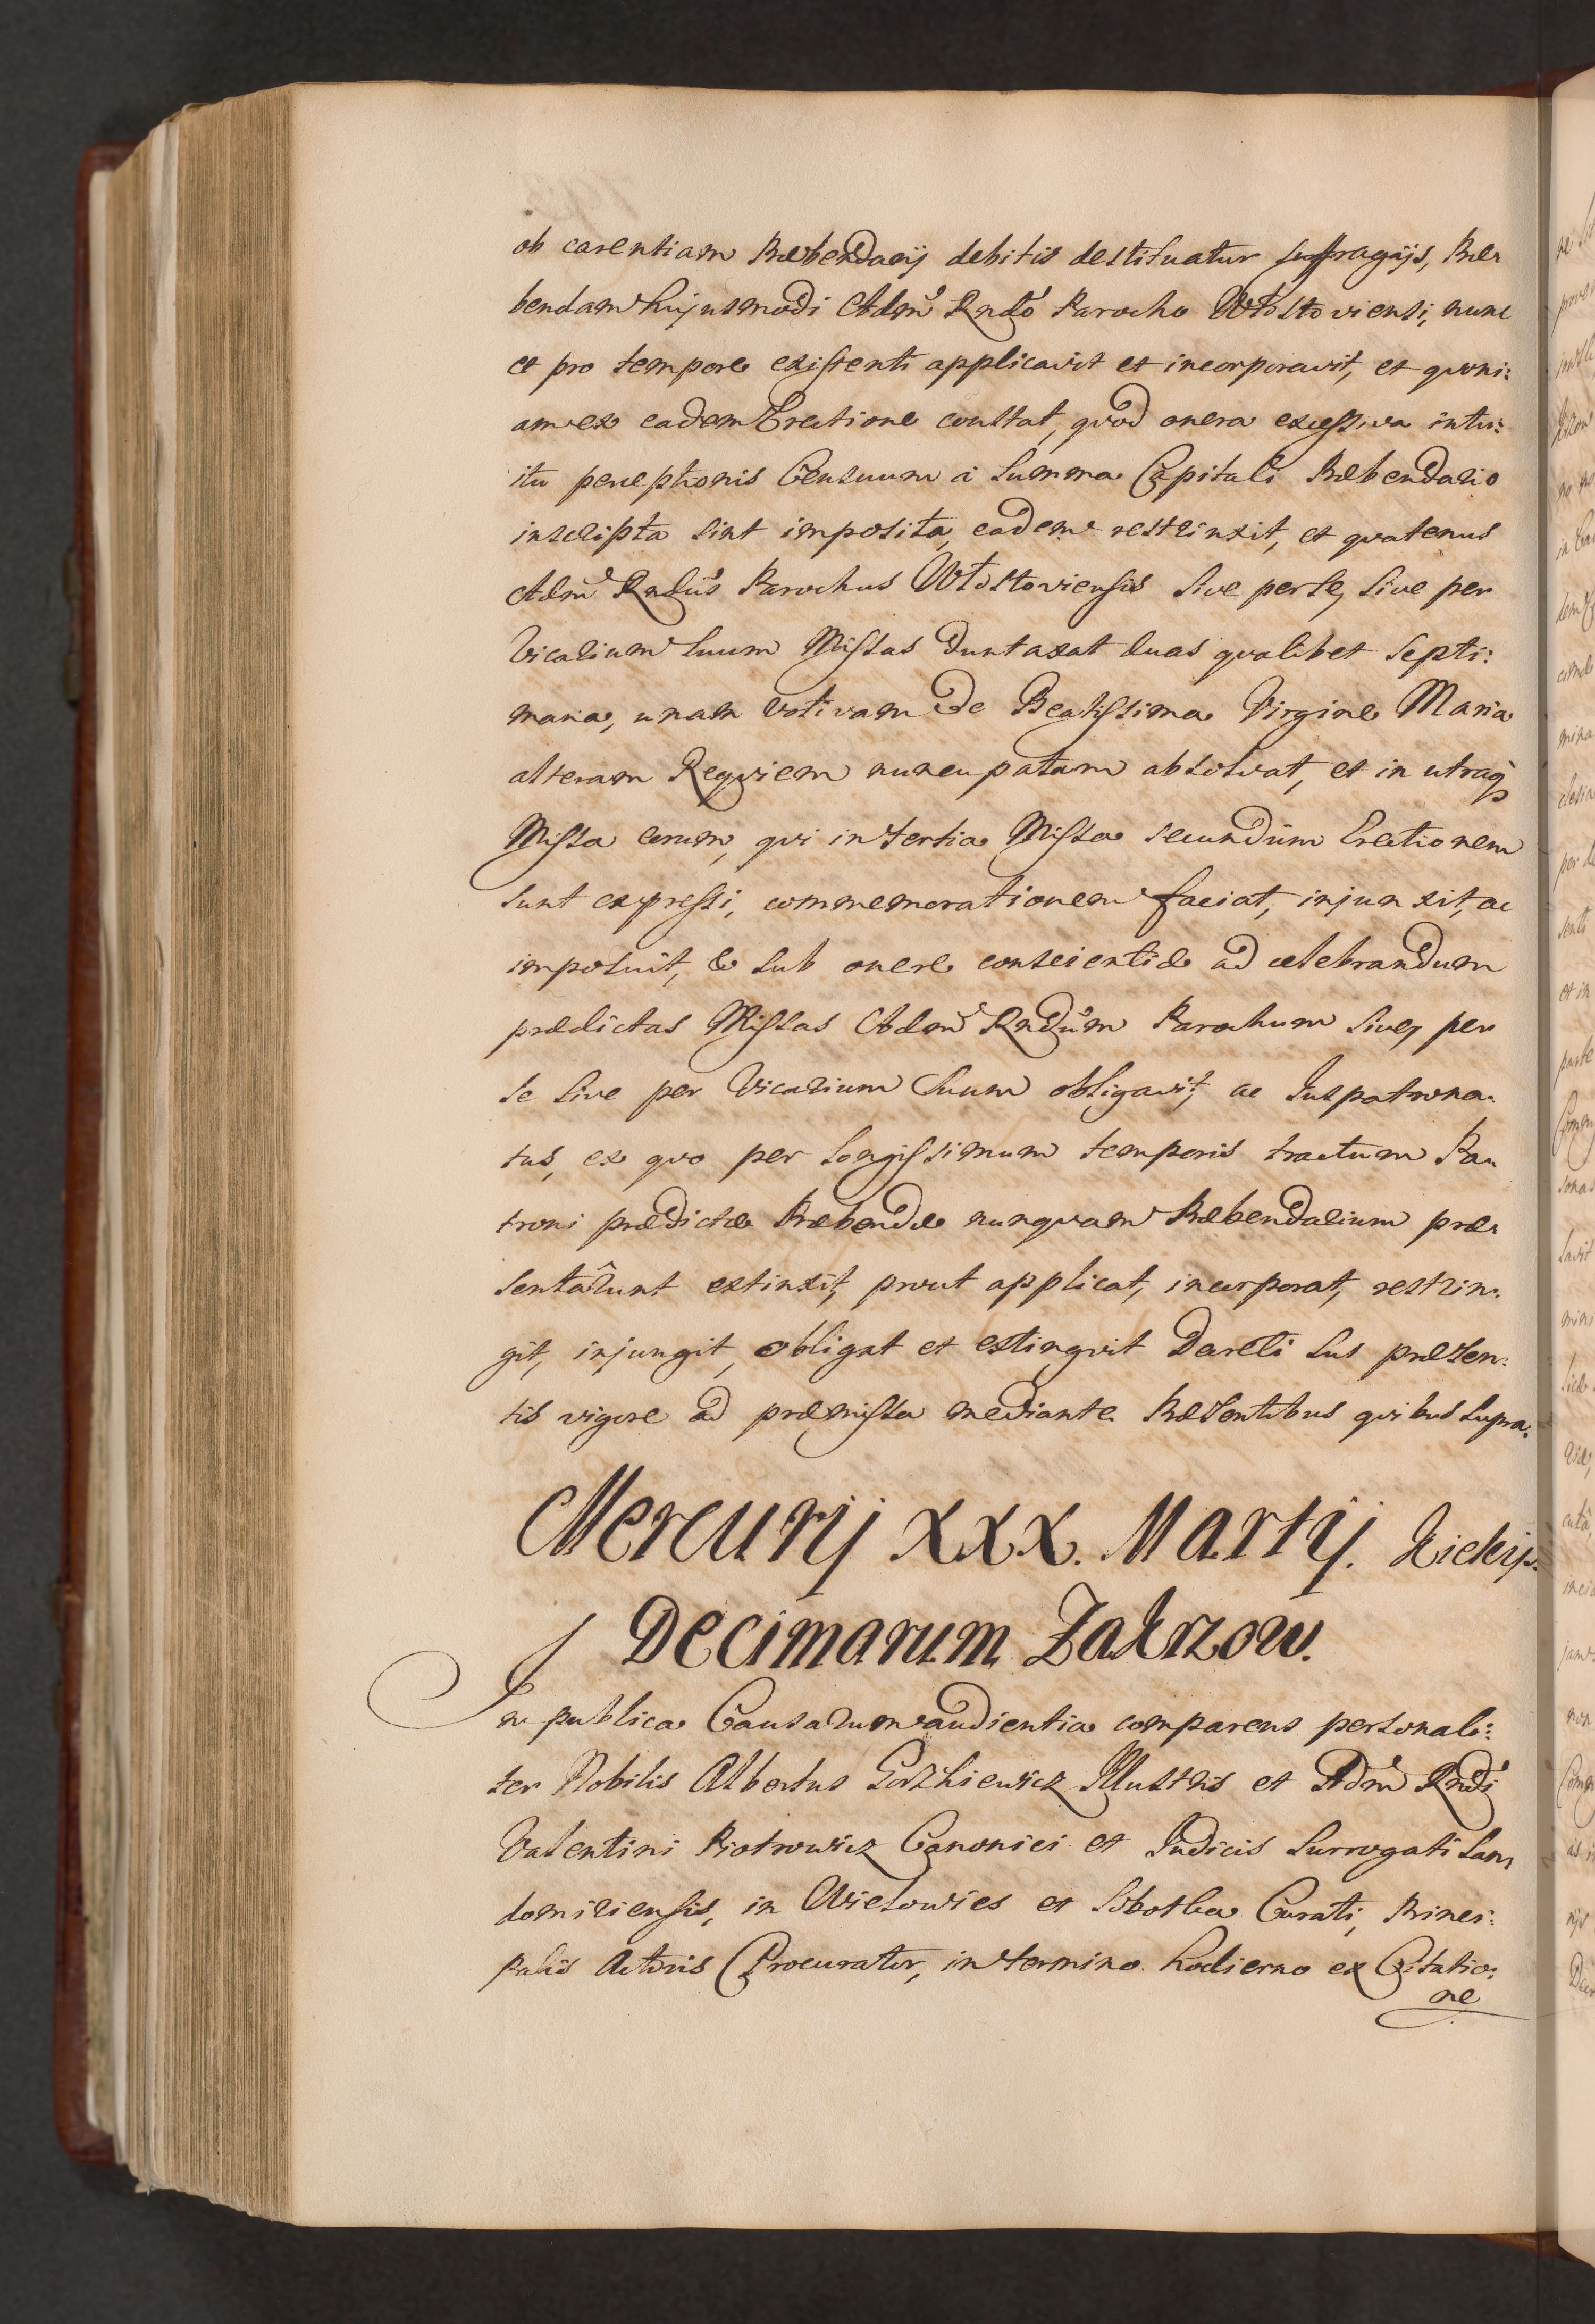 ob carentiam Præbendarij debitis destituatur suffragijs, Præ-
bendam hujusmodi Adm̃ Rndo Parocho Włostoviensi, nunc
et pro tempore existenti applicavit et incorporavit, et quoni:
am ex eadem Erectione constat, quod onera excessiva intu:
itu perceptionis Censuum à Summa Capitali Præbendario
inscripta sint imposita, eadem restrinxit, et quatenus
Adm̃ Rndus Parochus Włostoviensis sive per se, sive per
Vicarium suum Missas duntaxat duas qualibet septi:
mana, unam votivam de Beatissima Virgine Maria
alteram Requiem nuncupatam absolvat, et in utraq
Missa eorum, qui in tertia Missa secundum Erectionem
sunt expressi, commemorationem faciat, injunxit, ac
imposuit, & sub onere conscientiæ ad celebrandum
prædictas Missas Adm̃ Rndum Parochum sive per
se sive per Vicarium suum obligavit, ac Juspatrona-
tus, ex quo per longissimum temporis tractum Pa-
troni prædictæ Præbendæ nunquam Præbendarium præ-
sentârunt extinxit, prout applicat, incorporat, restrin-
git, injungit, obligat et extingvit Decreti sui præsen-
tis vigore ad præmissa mediante. Præsentibus quibus supra.
Mercurij XXX. Martij.
Decimarum Zakrzow.
In publica Causarum audientia comparens personali:
ter Nobilis Albertus Gorzkiewicz Illustris et Adm̃ Rndi
Valentini Piotrowicz Canonici et Judicis Surrogati San-
domiriensis, in Wielowies et Sobotka Curati, Princi:
palis Actoris Procurator, in termino hodierno ex Citatio:
ne